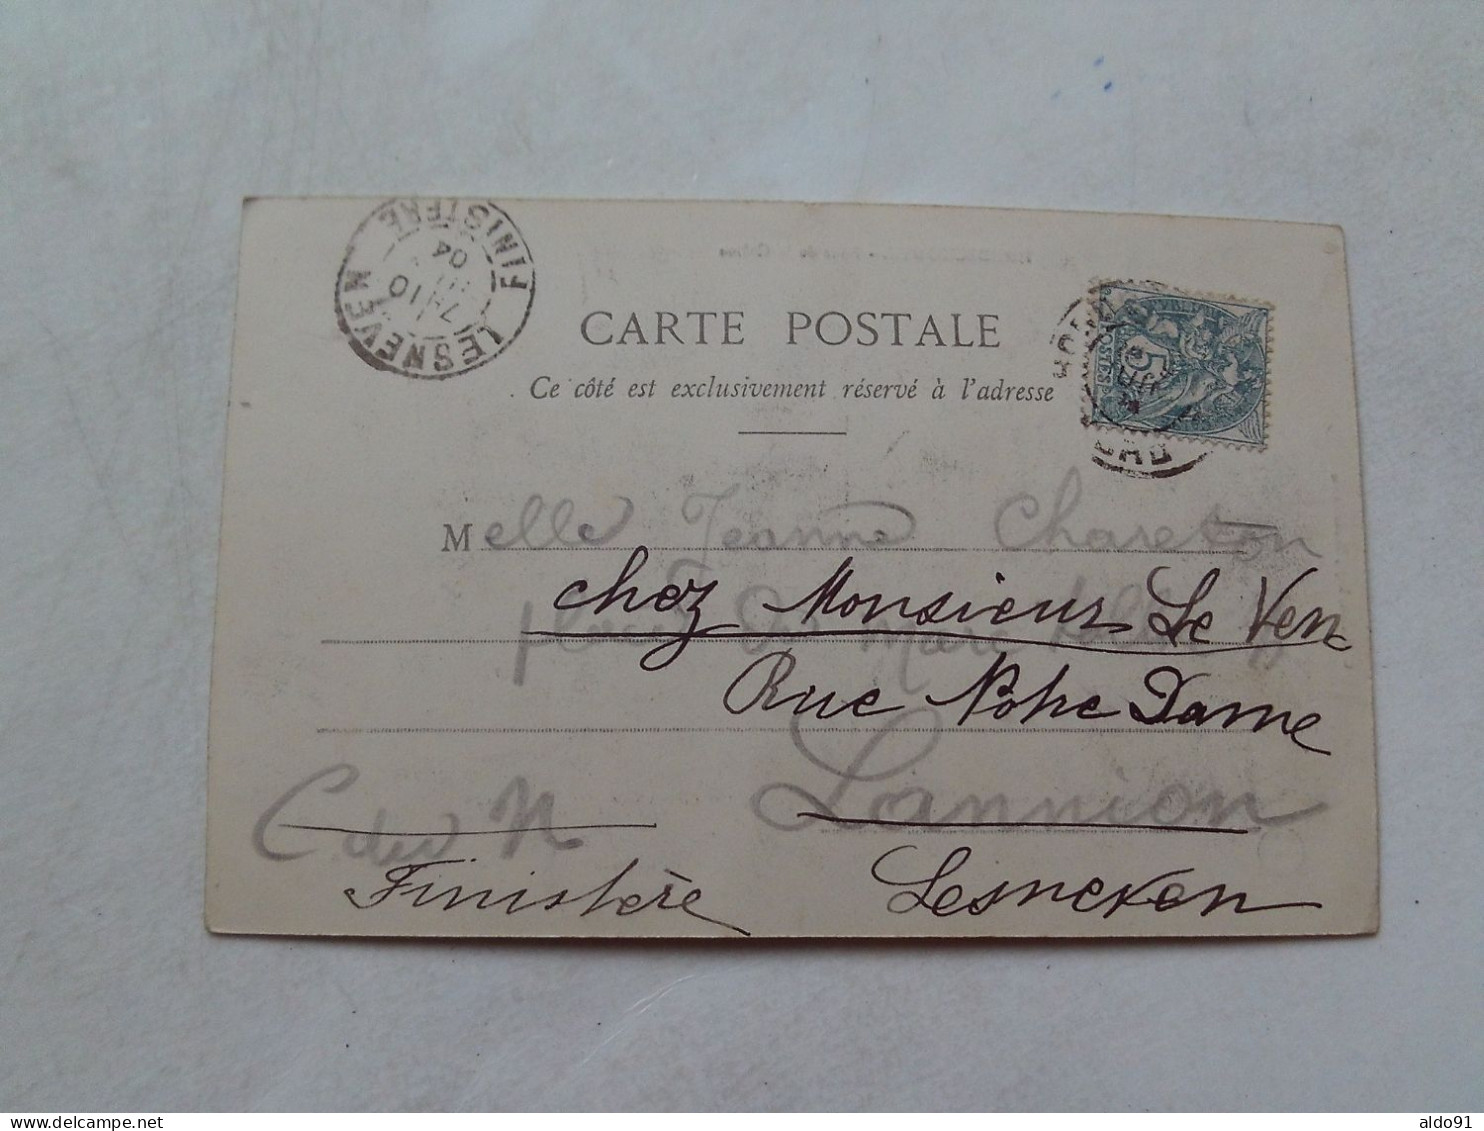 FINISTERE
LESNEVEN
04
CARTE POSTALE
Ce côté est exclusivement réservé à l'adresse
POSTES
5
Melle Jeanne Chareton
chez Monsieur Le Ven
place du
Rue Notre Dame
Lannion
C du N
Finistère Lesneven
aldo91